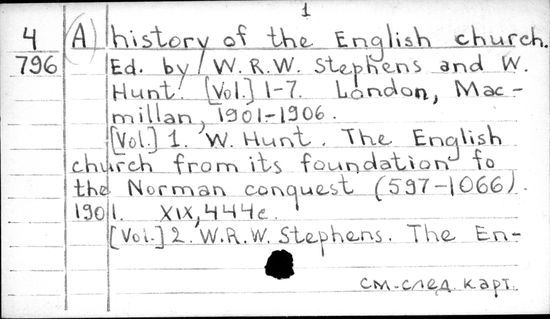 1
4 (A) history of the English church.
796 Ed. by W.R.W. Stephens and W.
Hunt. [Vol.] 1-7. London, Mac-
millan, 1901-1906.
[Vol.] 1. W. Hunt. The English
church from its foundation fo
the Norman conquest (597-1066).
1901. XIX, 444c.
[Vol.] 2. W.R.W. Stephens. The En-
см. след. карт.